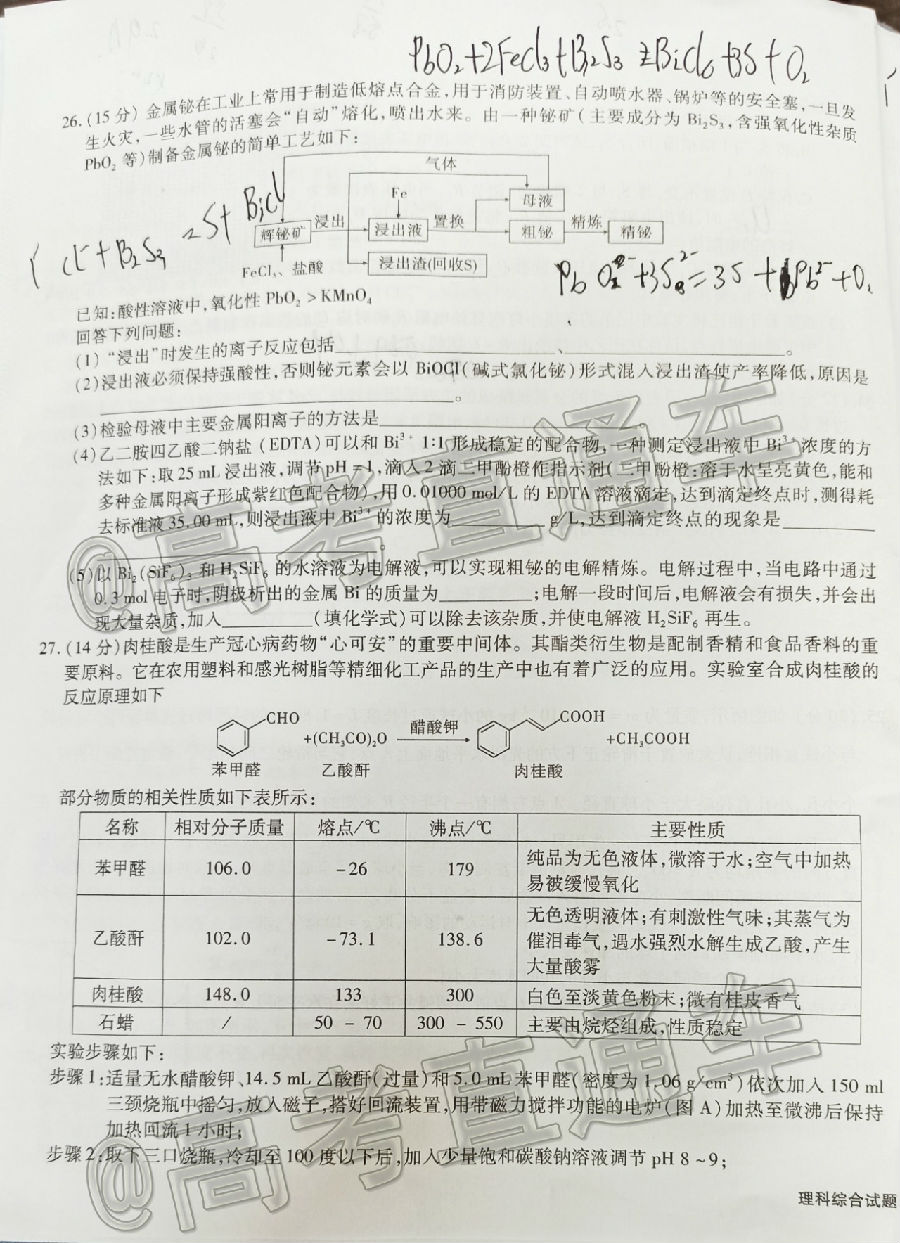 PbO₂+2FeCl₃+Bi₂S₃ = BiCl₆+3S+O₂
26.(15分)金属铋在工业上常用于制造低熔点合金,用于消防装置、自动喷水器、锅炉等的安全塞,一旦发
生火灾,一些水管的活塞会“自动”熔化,喷出水来。由一种铋矿(主要成分为 Bi₂S₃,含强氧化性杂质
PbO₂ 等)制备金属铋的简单工艺如下:
气体
Fe
母液
辉铋矿
浸出
浸出液
置换
粗铋
精炼
精铋
FeCl₃、盐酸
浸出渣(回收S)
已知:酸性溶液中,氧化性 PbO₂ > KMnO₄
回答下列问题:
(1)“浸出”时发生的离子反应包括____、____。
(2)浸出液必须保持强酸性,否则铋元素会以 BiOCl(碱式氯化铋)形式混入浸出渣使产率降低,原因是
____。
(3)检验母液中主要金属阳离子的方法是____
(4)乙二胺四乙酸二钠盐(EDTA)可以和 Bi³⁺ 1:1 形成稳定的配合物,一种测定浸出液中 Bi³⁺ 浓度的方
法如下:取 25 mL 浸出液,调节 pH = 1,滴入 2 滴二甲酚橙作指示剂(二甲酚橙:溶于水呈亮黄色,能和
多种金属阳离子形成紫红色配合物),用 0.01000 mol/L 的 EDTA 溶液滴定,达到滴定终点时,测得耗
去标准液 35.00 mL,则浸出液中 Bi³⁺ 的浓度为____ g/L,达到滴定终点的现象是____
____。
(5)以 Bi₂(SiF₆)₃ 和 H₂SiF₆ 的水溶液为电解液,可以实现粗铋的电解精炼。电解过程中,当电路中通过
0.3 mol 电子时,阴极析出的金属 Bi 的质量为____;电解一段时间后,电解液会有损失,并会出
现大量杂质,加入____(填化学式)可以除去该杂质,并使电解液 H₂SiF₆ 再生。
27.(14分)肉桂酸是生产冠心病药物“心可安”的重要中间体。其酯类衍生物是配制香精和食品香料的重
要原料。它在农用塑料和感光树脂等精细化工产品的生产中也有着广泛的应用。实验室合成肉桂酸的
反应原理如下
CHO +(CH₃CO)₂O 醋酸钾 COOH +CH₃COOH
苯甲醛 乙酸酐 肉桂酸
部分物质的相关性质如下表所示:
名称 相对分子质量 熔点/℃ 沸点/℃ 主要性质
苯甲醛 106.0 -26 179 纯品为无色液体,微溶于水;空气中加热
易被缓慢氧化
乙酸酐 102.0 -73.1 138.6 无色透明液体;有刺激性气味;其蒸气为
催泪毒气,遇水强烈水解生成乙酸,产生
大量酸雾
肉桂酸 148.0 133 300 白色至淡黄色粉末;微有桂皮香气
石蜡 / 50 - 70 300 - 550 主要由烷烃组成,性质稳定
实验步骤如下:
步骤1:适量无水醋酸钾、14.5 mL 乙酸酐(过量)和 5.0 mL 苯甲醛(密度为 1.06 g/cm³)依次加入 150 ml
三颈烧瓶中摇匀,放入磁子,搭好回流装置,用带磁力搅拌功能的电炉(图 A)加热至微沸后保持
加热回流 1 小时;
步骤2:取下三口烧瓶,冷却至 100 度以下后,加入少量饱和碳酸钠溶液调节 pH 8 ~ 9;
理科综合试题
@高考直通车
@高考直通车